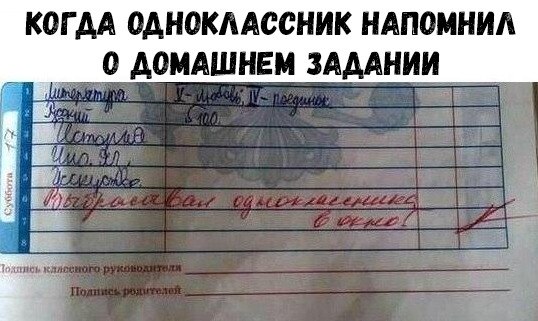 КОГДА ОДНОКЛАССНИК НАПОМНИЛ
О ДОМАШНЕМ ЗАДАНИИ
1 Литература V - Любовь, IV - поединок
2 Родной § 100.
3 История
4 Ино. яз.
5 Исскуство
6 Выбрасывал одноклассника
7 в окно!
8
Суббота 17
Подпись классного руководителя
Подпись родителей